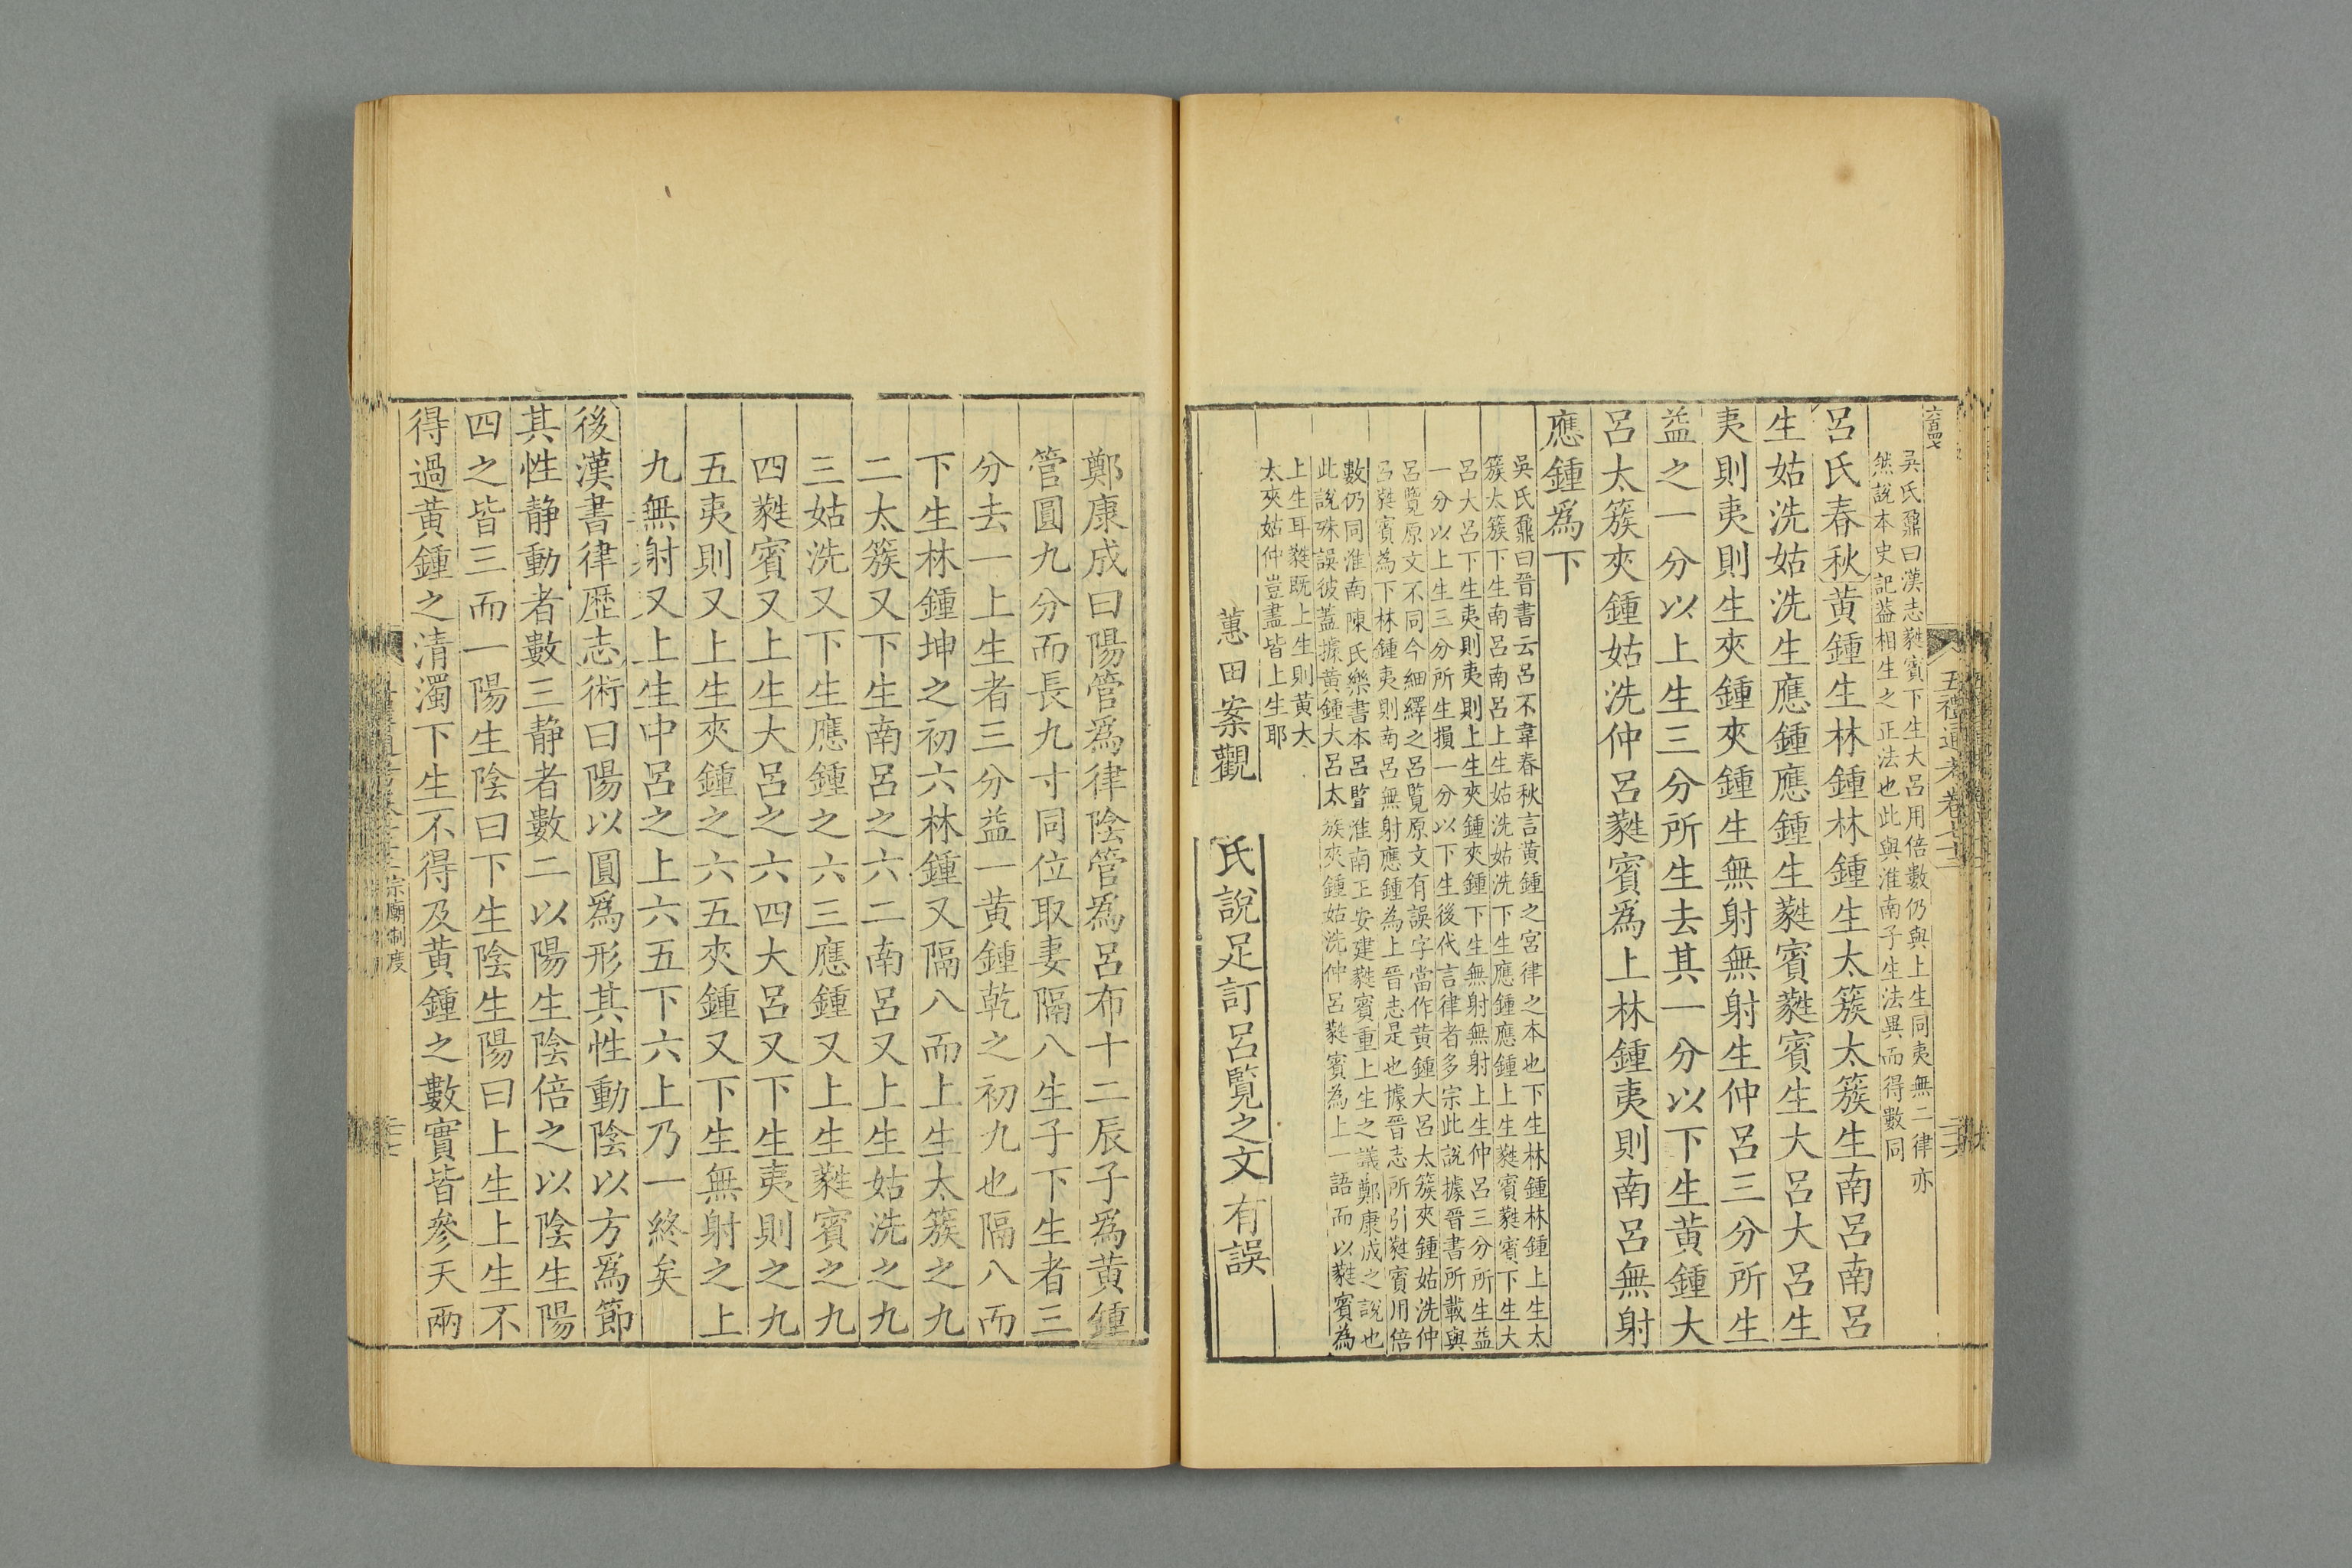 五禮通考卷七十二
吳氏鼐曰漢志蕤賓下生大呂用倍數仍與上生同夷無二律亦
然說本史記益相生之正法也此與淮南子生法異而得數同
呂氏春秋黃鍾生林鍾林鍾生太簇太簇生南呂南呂
生姑洗姑洗生應鍾應鍾生蕤賓蕤賓生大呂大呂生
夷則夷則生夾鍾夾鍾生無射無射生仲呂三分所生
益之一分以上生三分所生去其一分以下生黃鍾大
呂太簇夾鍾姑洗仲呂蕤賓為上林鍾夷則南呂無射
應鍾為下
吳氏鼐曰晉書云呂不韋春秋言黃鍾之宮律之本也下生林鍾林鍾上生太
簇太簇下生南呂南呂上生姑洗姑洗下生應鍾應鍾上生蕤賓蕤賓下生大
呂大呂下生夷則夷則上生夾鍾夾鍾下生無射無射上生仲呂三分所生益
一分以上生三分所生損一分以下生後代言律者多宗此說據晉書所載與
呂覽原文不同今細繹之呂覽原文有誤字當作黃鍾大呂太簇夾鍾姑洗仲
呂蕤賓為下林鍾夷則南呂無射應鍾為上晉志是也據晉志所引蕤賓用倍
數仍同淮南陳氏樂書本呂覽淮南正安建蕤賓重上生之議鄭康成之說也
此說殊誤彼蓋據黃鍾大呂太簇夾鍾姑洗仲呂蕤賓為上一語而以蕤賓為
上生耳蕤既上生則黃大
太夾姑仲豈盡皆上生耶
蕙田案觀氏說足訂呂覽之文有誤
鄭康成曰陽管為律陰管為呂布十二辰子為黃鍾
管圓九分而長九寸同位取妻隔八生子下生者三
分去一上生者三分益一黃鍾乾之初九也隔八而
下生林鍾坤之初六林鍾又隔八而上生太簇之九
二太簇又下生南呂之六二南呂又上生姑洗之九
三姑洗又下生應鍾之六三應鍾又上生蕤賓之九
四蕤賓又上生大呂之六四大呂又下生夷則之九
五夷則又上生夾鍾之六五夾鍾又下生無射之上
九無射又上生中呂之上六五下六上乃一終矣
後漢書律歷志術曰陽以圓為形其性動陰以方為節
其性靜動者數三靜者數二以陽生陰倍之以陰生陽
四之皆三而一陽生陰曰下生陰生陽曰上生上生不
得過黃鍾之清濁下生不得及黃鍾之數實皆參天兩
宗廟制度